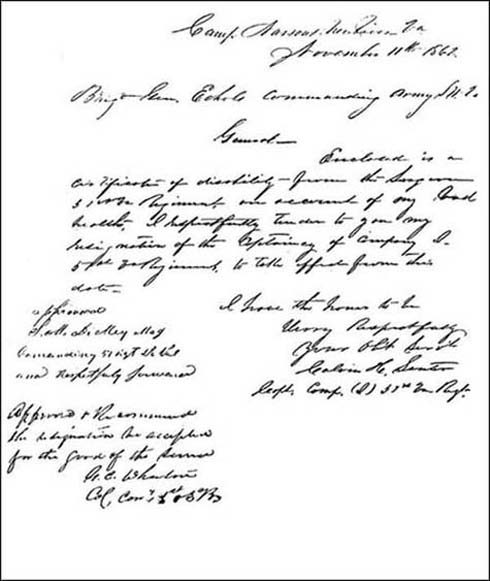 Camp Narrows New River Va
November 11th 1862.
Brig. Gen. Echols Commanding Army S.W. Va
General—
Enclosed is a
certificate of disability from the Surgeon
51 Va Regiment on account of my bad
health, I respectfully tender to you my
resignation of the Captaincy of Company D
51st Va Regiment, to take effect from this
date—
I have the honor to be
Very Respectfully
Your Obt Servt
Calvin H. Senter
Capt. Comp. (D) 51st Va Regt.
approved
Maj
Comanding 51 regt Va Vol
and respectfuly forwarded
Approved & Recommend
the resignation be accepted
for the good of the service
G. C. Wharton
Col, Com'g 1st